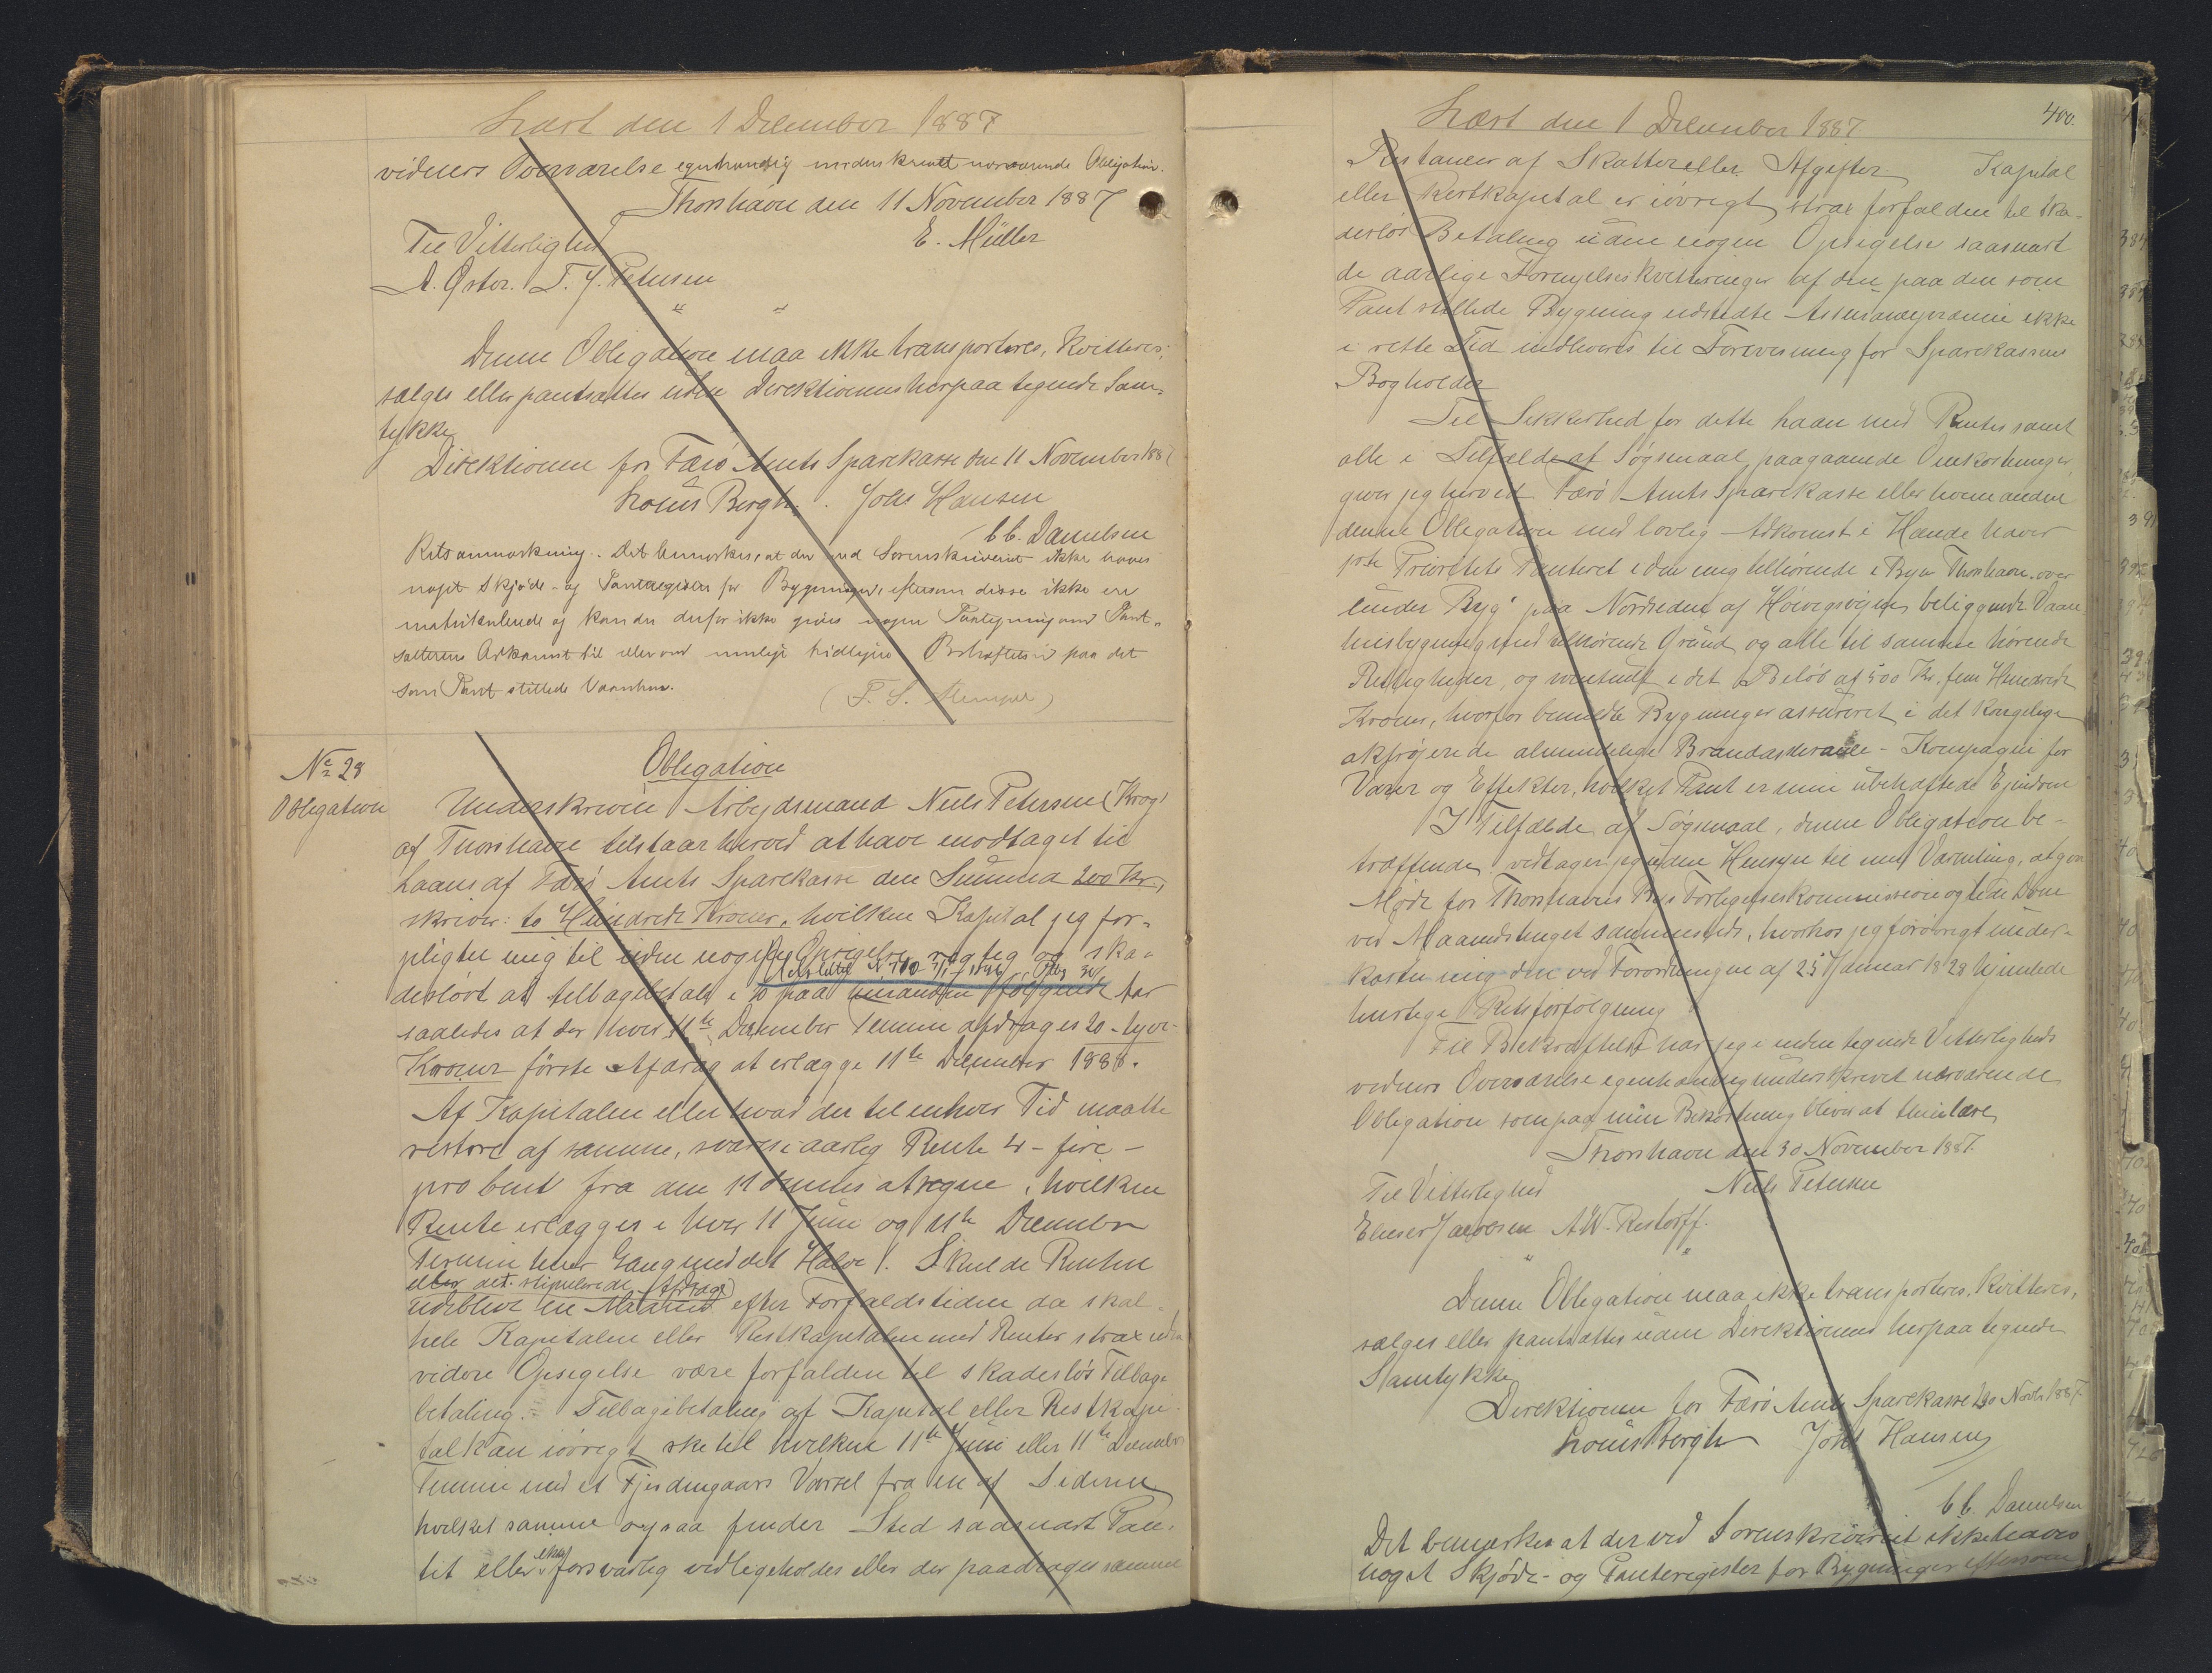 Læst den 1 December 1887
vidners Overværelse egenhændig underskrevet nærværende Obligation.
Thorshavn den 11 November 1887
Til Vitterlighed E. Müller
A. Öster. T. J. Petersen
" "
Denne Obligation maa ikke transporteres, kvitteres,
sælges eller pantsættes uden Direktionens herpaa tegnede Sam-
tykke
Direktionen for Færö Amts Sparekasse den 11 November 1887
Louis Bergh. Johs Hansen
C C. Danielsen
Retsanmærkning. Det bemærkes, at der ved Sorenskriveriet ikke haves
noget Skjöde- og Panteregister for Bygninger, eftersom disse ikke ere
matrikulerede og kan der derfor ikke gives nogen Paategning om Pant-
sætterens Adkomst til eller om mulige tidligere Behæftelser paa det
som Pant stillede Vaanhus.
No 28 Obligation
Obligation Underskrevne Arbejdsmand Niels Petersen (Krog)
af Thorshavn tilstaar herved at have modtaget til
Laans af Færö Amts Sparekasse den Summa 200 Kr,
skriver: to Hundrede Kroner, hvilken Kapital jeg for-
pligter mig til uden nogen Opsigelse rigtig og ska-
deslöst at tilbagebetale i 10 paa hinanden fölgende Aar
saaledes at der hver 11te December Termin afdrages 20 - tyve
Kroner förste Afdrag at erlægge 11te December 1888.
Af Kapitalen eller hvad der til enhver Tid maatte
restere af samme, svares i aarlig Rente 4 - fire -
pro Cent fra den 11 dennes at regne, hvilken
Rente erlægges i hver 11 Juni og 11te December
Termin hver Gang med det Halve. Skulde Renten
eller det stipulerede Afdrag
udeblive en Maaned efter Forfaldstiden da skal
hele Kapitalen eller Restkapitalen med Renter strax uden
videre Opsigelse være forfalden til skadeslös Tilbage
betaling. - Tilbagebetaling af Kapital eller Restkapi-
tal kan iövrigt ske til hvilken 11te Juni eller 11te December
Termin med et Fjerdingaars Varsel fra en af Siderne
hvilket samme ogsaa finder Sted saasnart Pan-
tet eller ikke forsvarlig vedligeholdes eller der paadrages samme
Læst den 1 December 1887 400.
Restancer af Skatter eller Afgifter Kapital
eller Restkapital er iövrigt strax forfalden til ska-
deslös Betaling uden nogen Opsigelse saasnart
de aarlige Fornyelseskvitteringer af den paa den som
Pant stillede Bygning udstedte Assurancepræmie ikke
i rette Tid indleveres til Forevisning for Sparekassens
Bogholder
Til Sikkerhed for dette Laan med Renter samt
alle i Tilfælde af Sögsmaal paagaaende Omkostninger,
giver jeg herved Færö Amts Sparekasse eller hvem anden
denne Obligation med lovlig Adkomst i Hænde haver
1ste Prioritets Panteret i den mig tilhörende i Byen Thorshavn over
under Ryg paa Nordsiden af Hoivegsvejen beliggende Vaan-
husbygning med tilhörende Grund og alle til samme hörende
Rettigheder, og i det Belöb af 500 Kr. fem Hundrede
Kroner, hvorfor bemeldte Bygning er assureret i det kongelige
oktrojerede almindelige Brandassurance-Kompagni for
Varer og Effekter, hvilket Pant er min ubehæftede Ejendom
I Tilfælde af Sögsmaal, denne Obligation be-
træffende vedtager jeg uden Hensyn til mit Værneting, at give
Möde for Thorshavns Byes Forligelseskommission og lide Dom
ved Maanedstinget sammesteds, hvorhos jeg forövrigt under-
kaster mig den ved Forordningen af 25 Januar 1828 hjemlede
hurtige Retsforfölgning
Til Bekræftelse har jeg i undertegnede Vitterligheds
vidners Overværelse egenhændig underskrevet nærværende
Obligation som paa min Bekostning bliver at thinglæse
Thorshavn den 30 November 1887.
Til Vitterlighed Niels Petersen
Elieser Jacobsen A. W. Restorff.
" "
Denne Obligation maa ikke transporteres, kvitteres,
sælges eller pantsættes uden Direktionens herpaa tegnede
Samtykke
Direktionen for Færö Amts Sparekasse 30 Novbr 1887.
Louis Bergh Johs Hansen
C C. Danielsen
Det bemærkes at der ved Sorenskriveriet ikke haves
noget Skjöde- og Panteregister for Bygninger eftersom